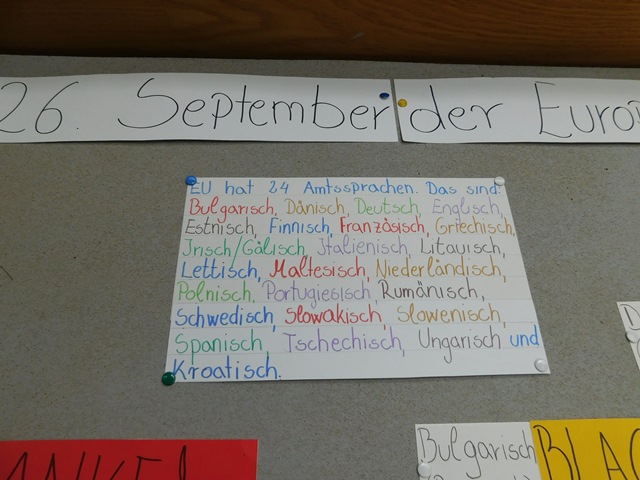 26. September der Euro
EU hat 24 Amtssprachen. Das sind:
Bulgarisch, Dänisch, Deutsch, Englisch,
Estnisch, Finnisch, Französisch, Griechisch,
Irisch/Gälisch, Italienisch, Litauisch,
Lettisch, Maltesisch, Niederländisch,
Polnisch, Portugiesisch, Rumänisch,
Schwedisch, Slowakisch, Slowenisch,
Spanisch, Tschechisch, Ungarisch und
Kroatisch.
Bulgarisch